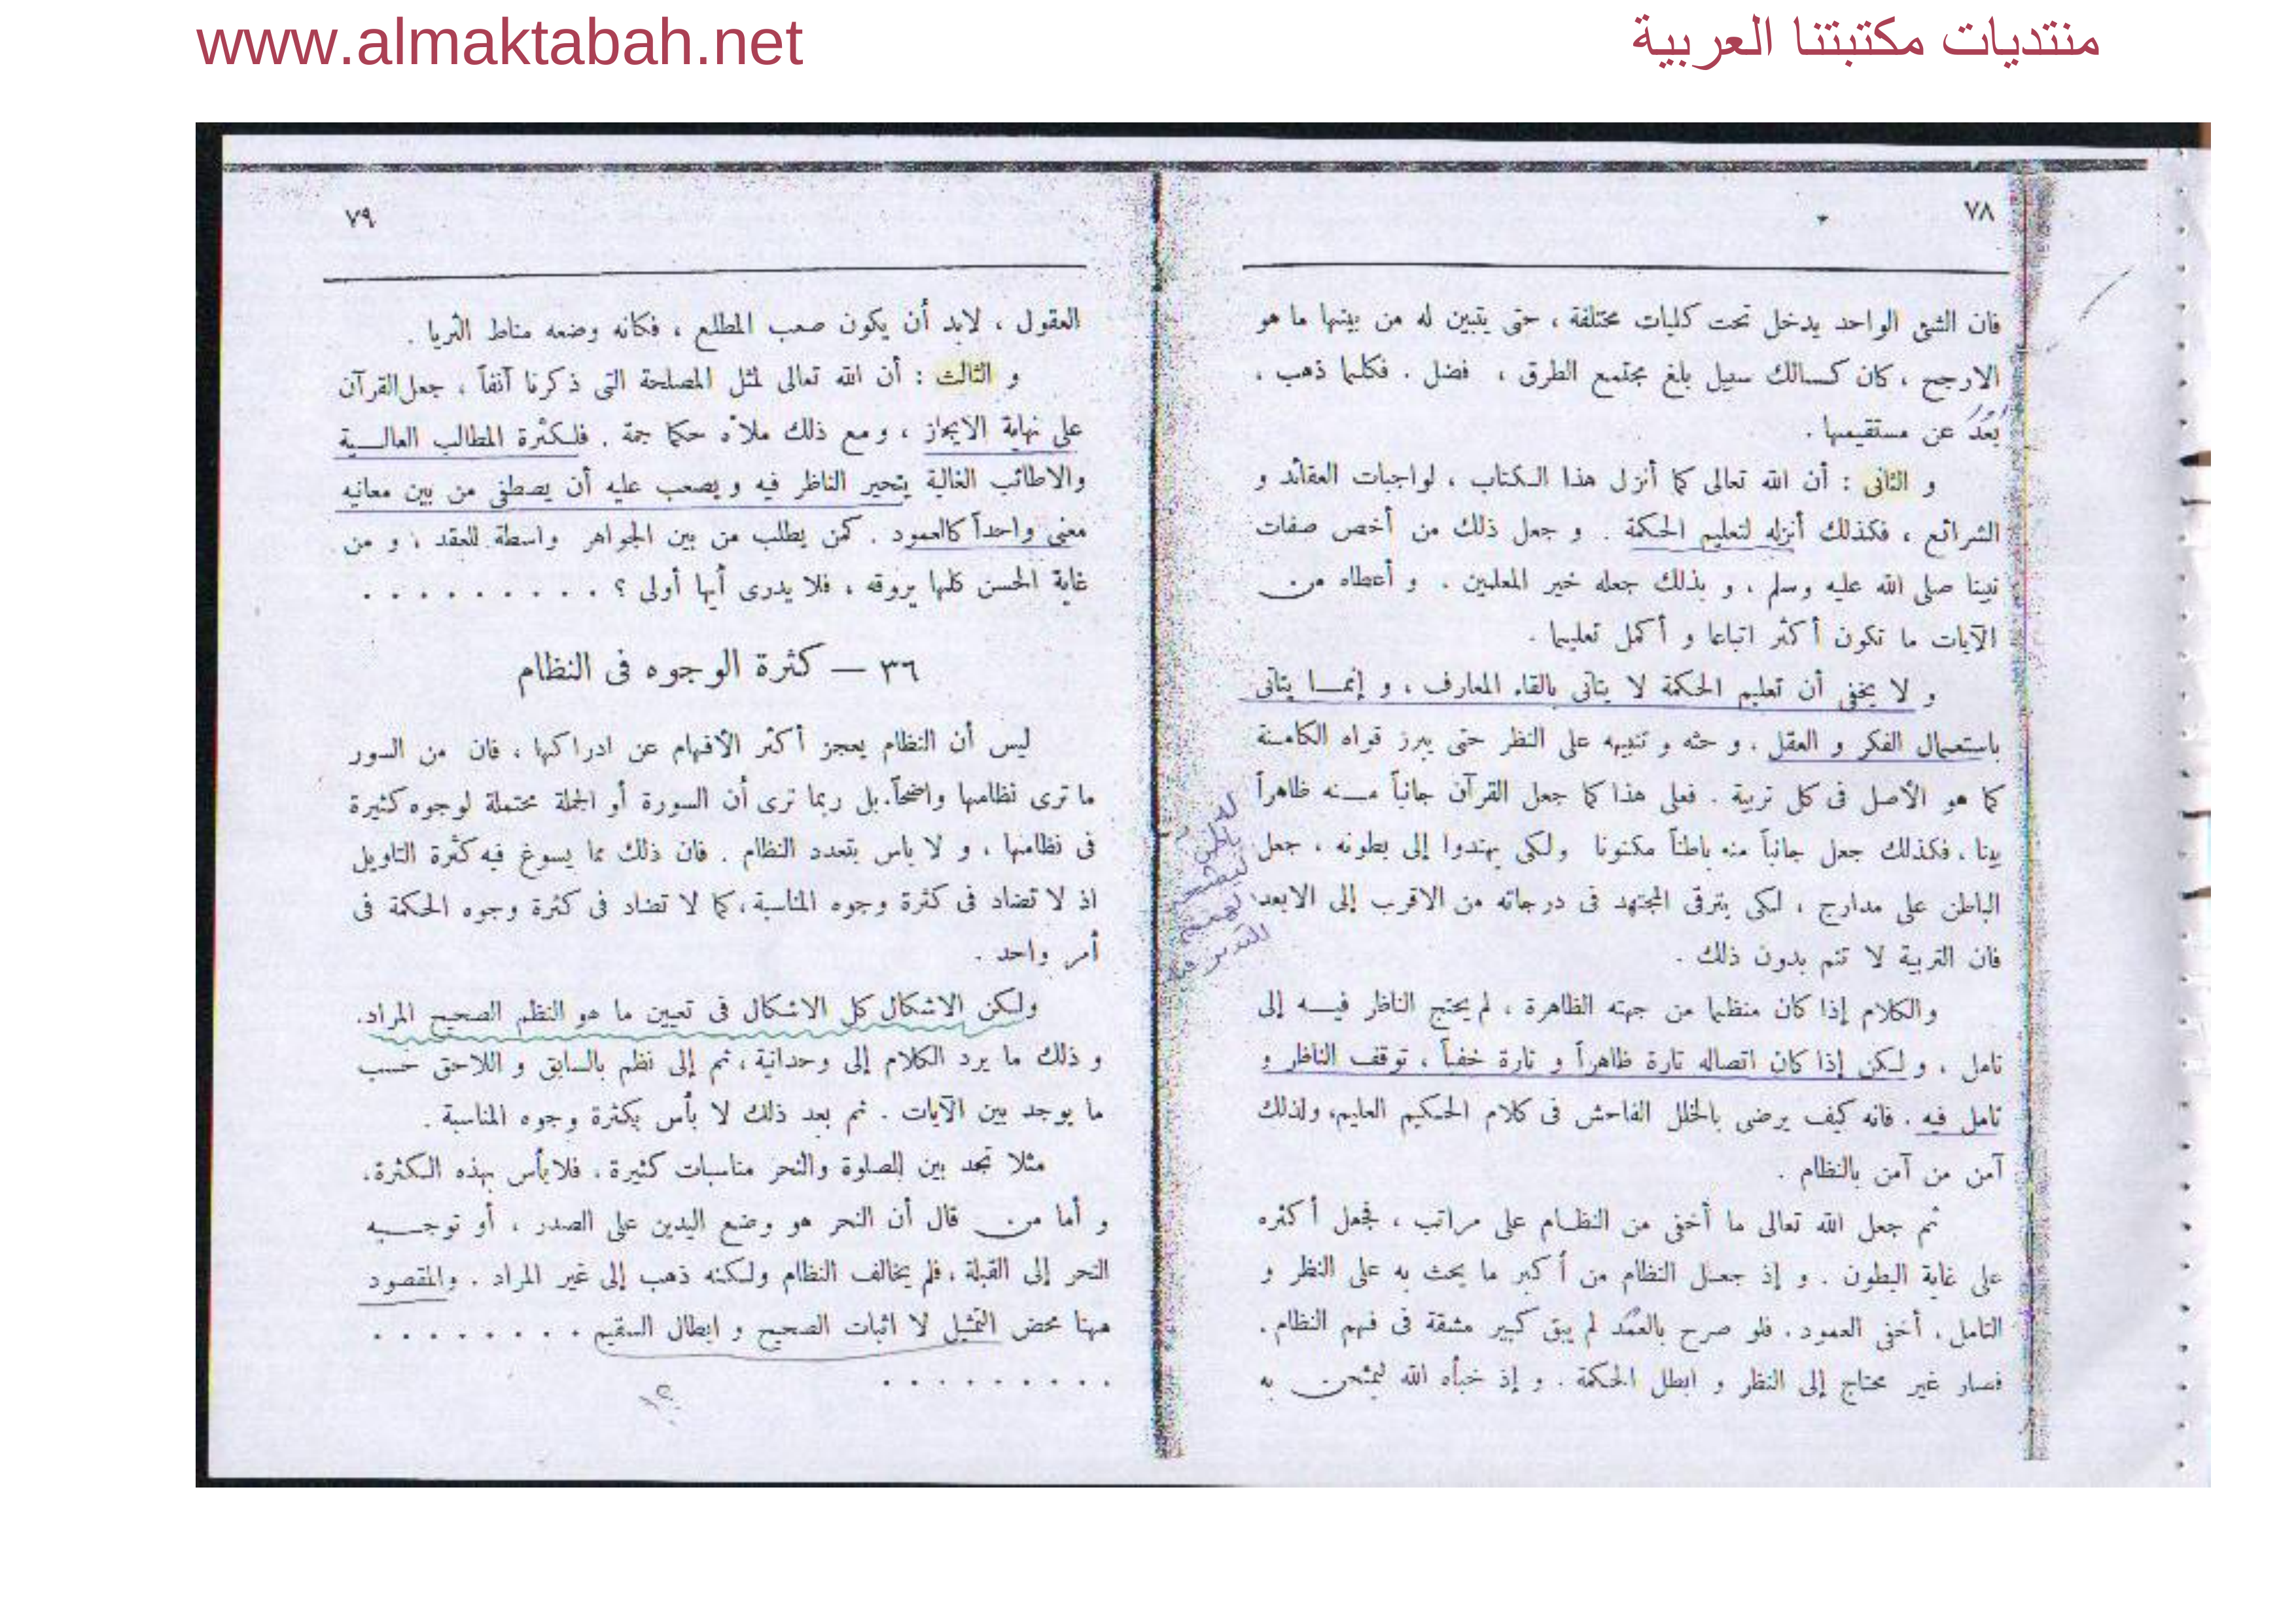 www.almaktabah.net
منتديات مكتبتنا العربية
٧٨
فان الشئ الواحد يدخل تحت كليات مختلفة ، حتى يتبين له من بينها ما هو
الارجح ، كان كسالك سبيل بلغ مجتمع الطرق ، فضل . فكلما ذهب ،
بعد عن مستقيمها .
و الثانى : أن الله تعالى كما أنزل هذا الكتاب ، لواجبات العقائد و
الشرائع ، فكذلك أنزله لتعليم الحكمة . و جعل ذلك من أخص صفات
نبينا صلى الله عليه وسلم ، و بذلك جعله خير المعلمين . و أعطاه من
الآيات ما تكون أكثر اتباعا و أكمل تعليما .
و لا يخفى أن تعليم الحكمة لا يتاتى بالقاء المعارف ، و إنما يتاتى
باستعمال الفكر و العقل ، و حثه و تنبيهه على النظر حتى يبرز قواه الكامنة
كما هو الأصل فى كل تربية . فعلى هذا كما جعل القرآن جانباً منه ظاهراً
بينا ، فكذلك جعل جانباً منه باطناً مكنونا ولكى يهتدوا إلى بطونه ، جعل
الباطن على مدارج ، لكى يترقى المجتهد فى درجاته من الاقرب إلى الابعد
فان التربية لا تتم بدون ذلك .
والكلام إذا كان منظما من جهته الظاهرة ، لم يحتج الناظر فيه إلى
تامل ، و لكن إذا كان اتصاله تارة ظاهراً و تارة خفياً ، توقف الناظر و
تامل فيه . فانه كيف يرضى بالخلل الفاحش فى كلام الحكيم العليم، ولذلك
آمن من آمن بالنظام .
ثم جعل الله تعالى ما أخفى من النظام على مراتب ، فجعل أكثره
على غاية البطون . و إذ جعل النظام من أكبر ما يحث به على النظر و
التامل ، أخفى العمود . فلو صرح بالعمد لم يبق كبير مشقة فى فهم النظام .
فصار غير محتاج إلى النظر و ابطل الحكمة . و إذ خبأه الله ليمتحن به
باطن
التدبر فيه
٧٩
العقول ، لابد أن يكون صعب المطلع ، فكانه وضعه مناط الثريا .
و الثالث : أن الله تعالى لمثل المصلحة التى ذكرنا آنفاً ، جعل القرآن
على نهاية الايجاز ، و مع ذلك ملآه حكما جمة . فلكثرة المطالب العالية
والاطائب الغالية يتحير الناظر فيه و يصعب عليه أن يصطفى من بين معانيه
معنى واحداً كالعمود . كمن يطلب من بين الجواهر واسطة للعقد ، و من
غاية الحسن كلها يروقه ، فلا يدرى أيها أولى ؟ . . . . . . . . .
٣٦ — كثرة الوجوه فى النظام
ليس أن النظام يعجز أكثر الأفهام عن ادراكها ، فان من السور
ما ترى نظامها واضحاً. بل ربما ترى أن السورة أو الجملة محتملة لوجوه كثيرة
فى نظامها ، و لا باس بتعدد النظام . فان ذلك مما يسوغ فيه كثرة التاويل
اذ لا تضاد فى كثرة وجوه المناسبة ، كما لا تضاد فى كثرة وجوه الحكمة فى
أمر واحد .
ولكن الاشكال كل الاشكال فى تعيين ما هو النظم الصحيح المراد.
و ذلك ما يرد الكلام إلى وحدانية ، ثم إلى نظم بالسابق و اللاحق حسب
ما يوجد بين الآيات . ثم بعد ذلك لا بأس بكثرة وجوه المناسبة .
مثلا تجد بين الصلوة والنحر مناسبات كثيرة . فلا بأس بهذه الكثرة .
و أما من قال أن النحر هو وضع اليدين على الصدر ، أو توجيه
النحر إلى القبلة ، فلم يخالف النظام ولكنه ذهب إلى غير المراد . والمقصود
ههنا محض التمثيل لا اثبات الصحيح و ابطال السقيم . . . . . . . .
. . . . . . . . .